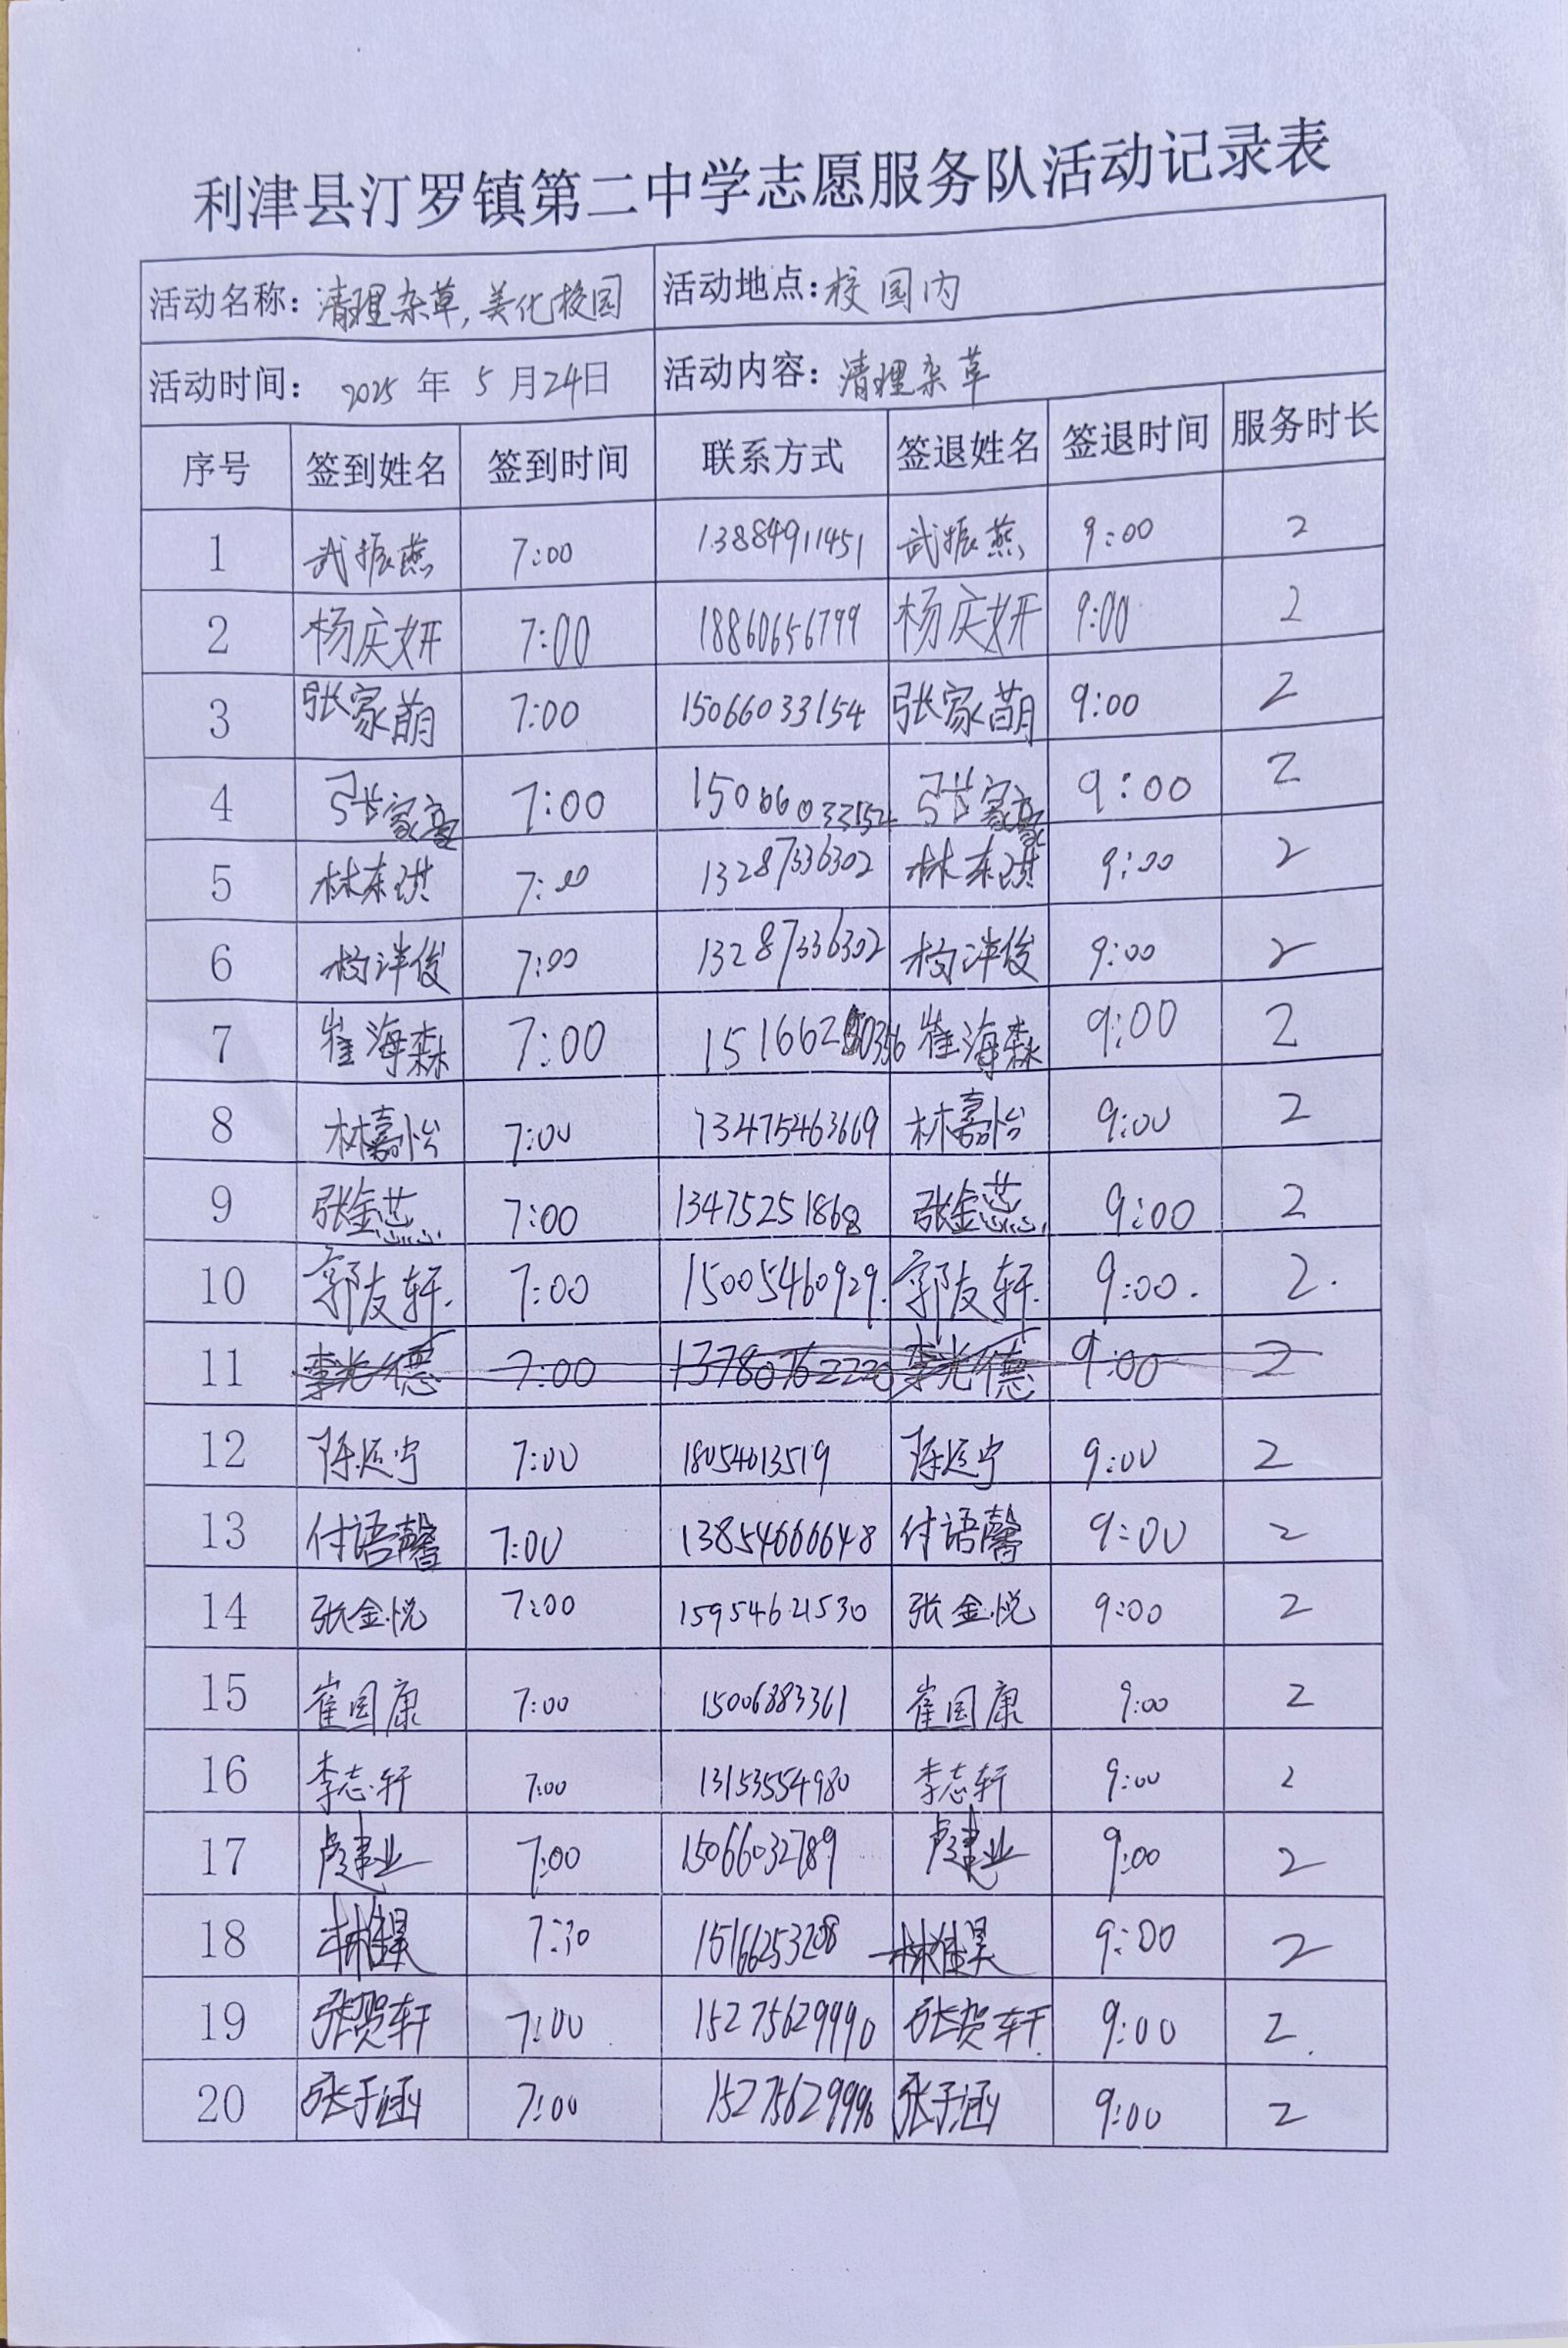 利津县汀罗镇第二中学志愿服务队活动记录表
活动名称：清理杂草，美化校园 活动地点：校园内
活动时间： 2025 年 5 月 24 日 活动内容：清理杂草
序号 签到姓名 签到时间 联系方式 签退姓名 签退时间 服务时长
1 武振燕 7:00 13884911451 武振燕 9:00 2
2 杨庆妍 7:00 18860656799 杨庆妍 9:00 2
3 张家萌 7:00 15066033154 张家萌 9:00 2
4 张家豪 7:00 15066033154 张家豪 9:00 2
5 林东琪 7:00 13287336302 林东琪 9:00 2
6 杨洋俊 7:00 13287336302 杨洋俊 9:00 2
7 崔海森 7:00 崔海森 9:00 2
8 林嘉怡 7:00 13475463669 林嘉怡 9:00 2
9 张金蕊 7:00 13475251868 张金蕊 9:00 2
10 郭友轩. 7:00 15005460929. 郭友轩. 9:00. 2.
11 李光德 7:00 13780762220 李光德 9:00 2
12 陈延宁 7:00 18054013519 陈延宁 9:00 2
13 付语馨 7:00 13854666648 付语馨 9:00 2
14 张金悦 7:00 15954621530 张金悦 9:00 2
15 崔国康 7:00 15006883361 崔国康 9:00 2
16 李志轩 7:00 13153554980 李志轩 9:00 2
17 卢建业 7:00 15066032789 卢建业 9:00 2
18 7:30 15166253208 9:00 2
19 张贺轩 7:00 15275629990 张贺轩 9:00 2.
20 张于涵 7:00 15275629990 张于涵 9:00 2